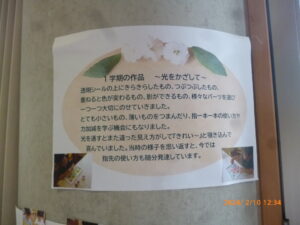 1学期の作品　～光をかざして～
透明シールの上にきらきらしたもの、つぶつぶしたもの、
重ねると色が変わるもの、影ができるもの、様々なパーツを選び
一つ一つ大切にのせていきました。
とても小さいもの、薄いものをつまんだり、指一本一本の使い方や
力加減を学ぶ機会にもなりました。
光を通すとまた違った見え方がして「きれい～」と覗き込んで
喜んでいました。当時の様子を思い返すと、今では
指先の使い方も随分発達しています。
2026/2/10 12:34